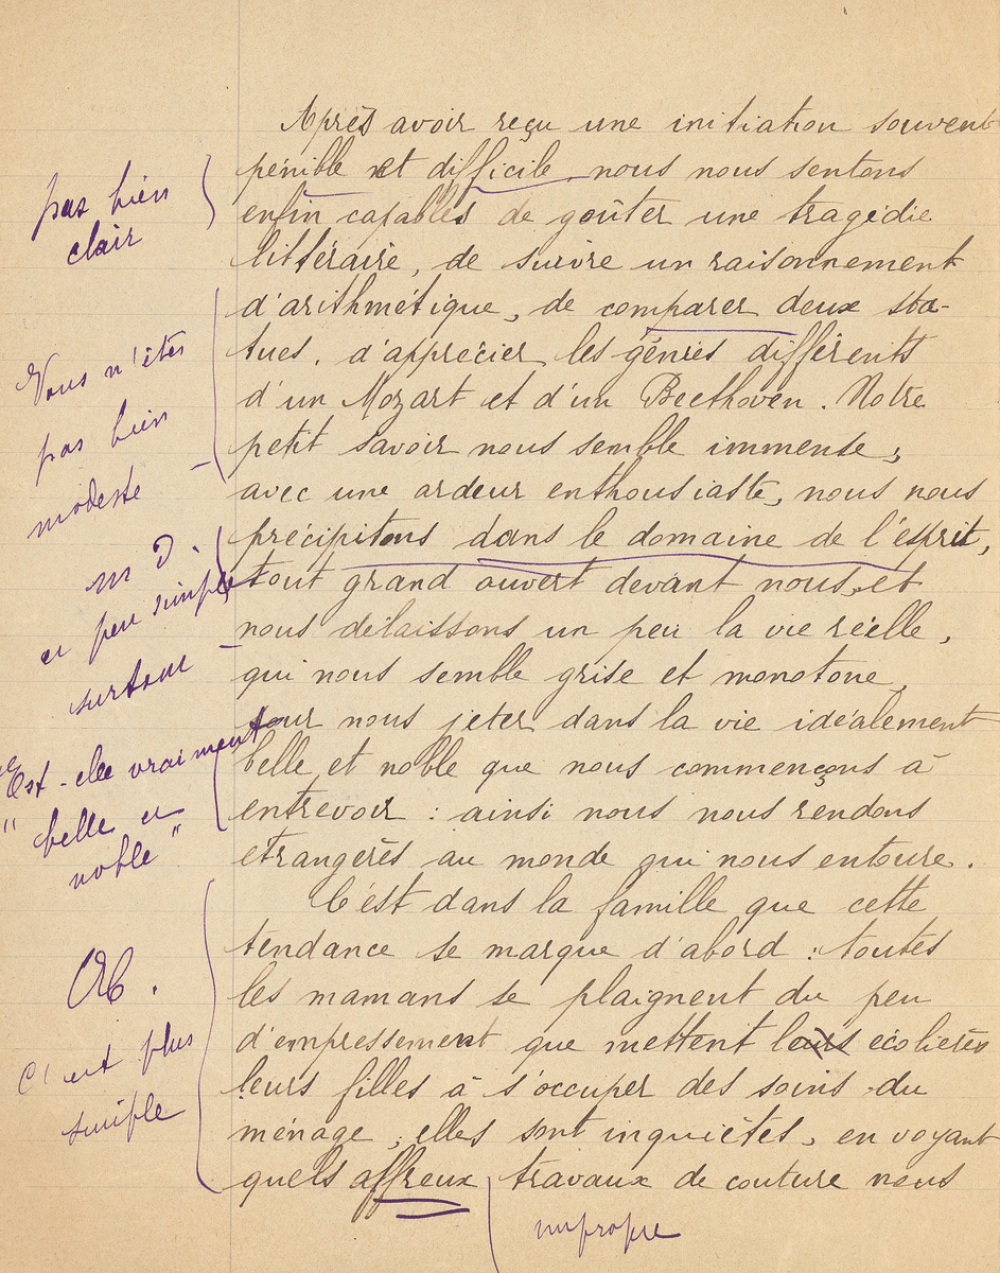 Après avoir reçu une initiation souvent
pas bien
clair
pénible et difficile, nous nous sentons
enfin capables de goûter une tragédie
littéraire, de suivre un raisonnement
d'arithmétique, de comparer deux sta-
tues, d'apprécier les génies différents
d'un Mozart et d'un Beethoven. Notre
petit savoir nous semble immense,
Vous n'êtes
pas bien
modeste
avec une ardeur enthousiaste, nous nous
précipitons dans le domaine de l'esprit,
tout grand ouvert devant nous, et
nous délaissons un peu la vie réelle,
un peu simple
surtout
qui nous semble grise et monotone,
pour nous jeter dans la vie idéalement
belle et noble que nous commençons à
entrevoir : ainsi nous nous rendons
étrangères au monde qui nous entoure.
Est-elle vraiment
"belle et
noble"
C'est dans la famille que cette
tendance se marque d'abord : toutes
les mamans se plaignent du peu
d'empressement que mettent leurs écolières
leurs filles à s'occuper des soins du
ménage, elles sont inquiètes, en voyant
quels affreux travaux de couture nous
AB.
C'est plus
simple
impropre